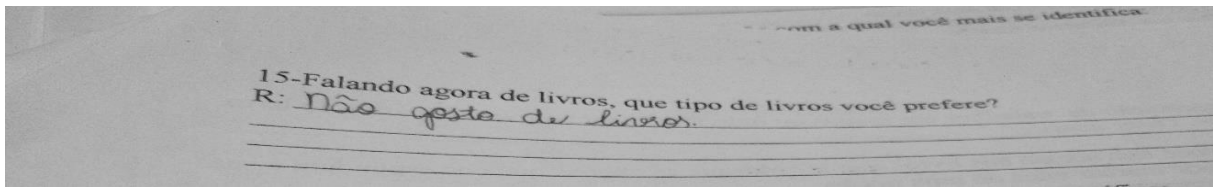 com a qual você mais se identifica
15-Falando agora de livros, que tipo de livros você prefere?
R: Não gosto de livros.